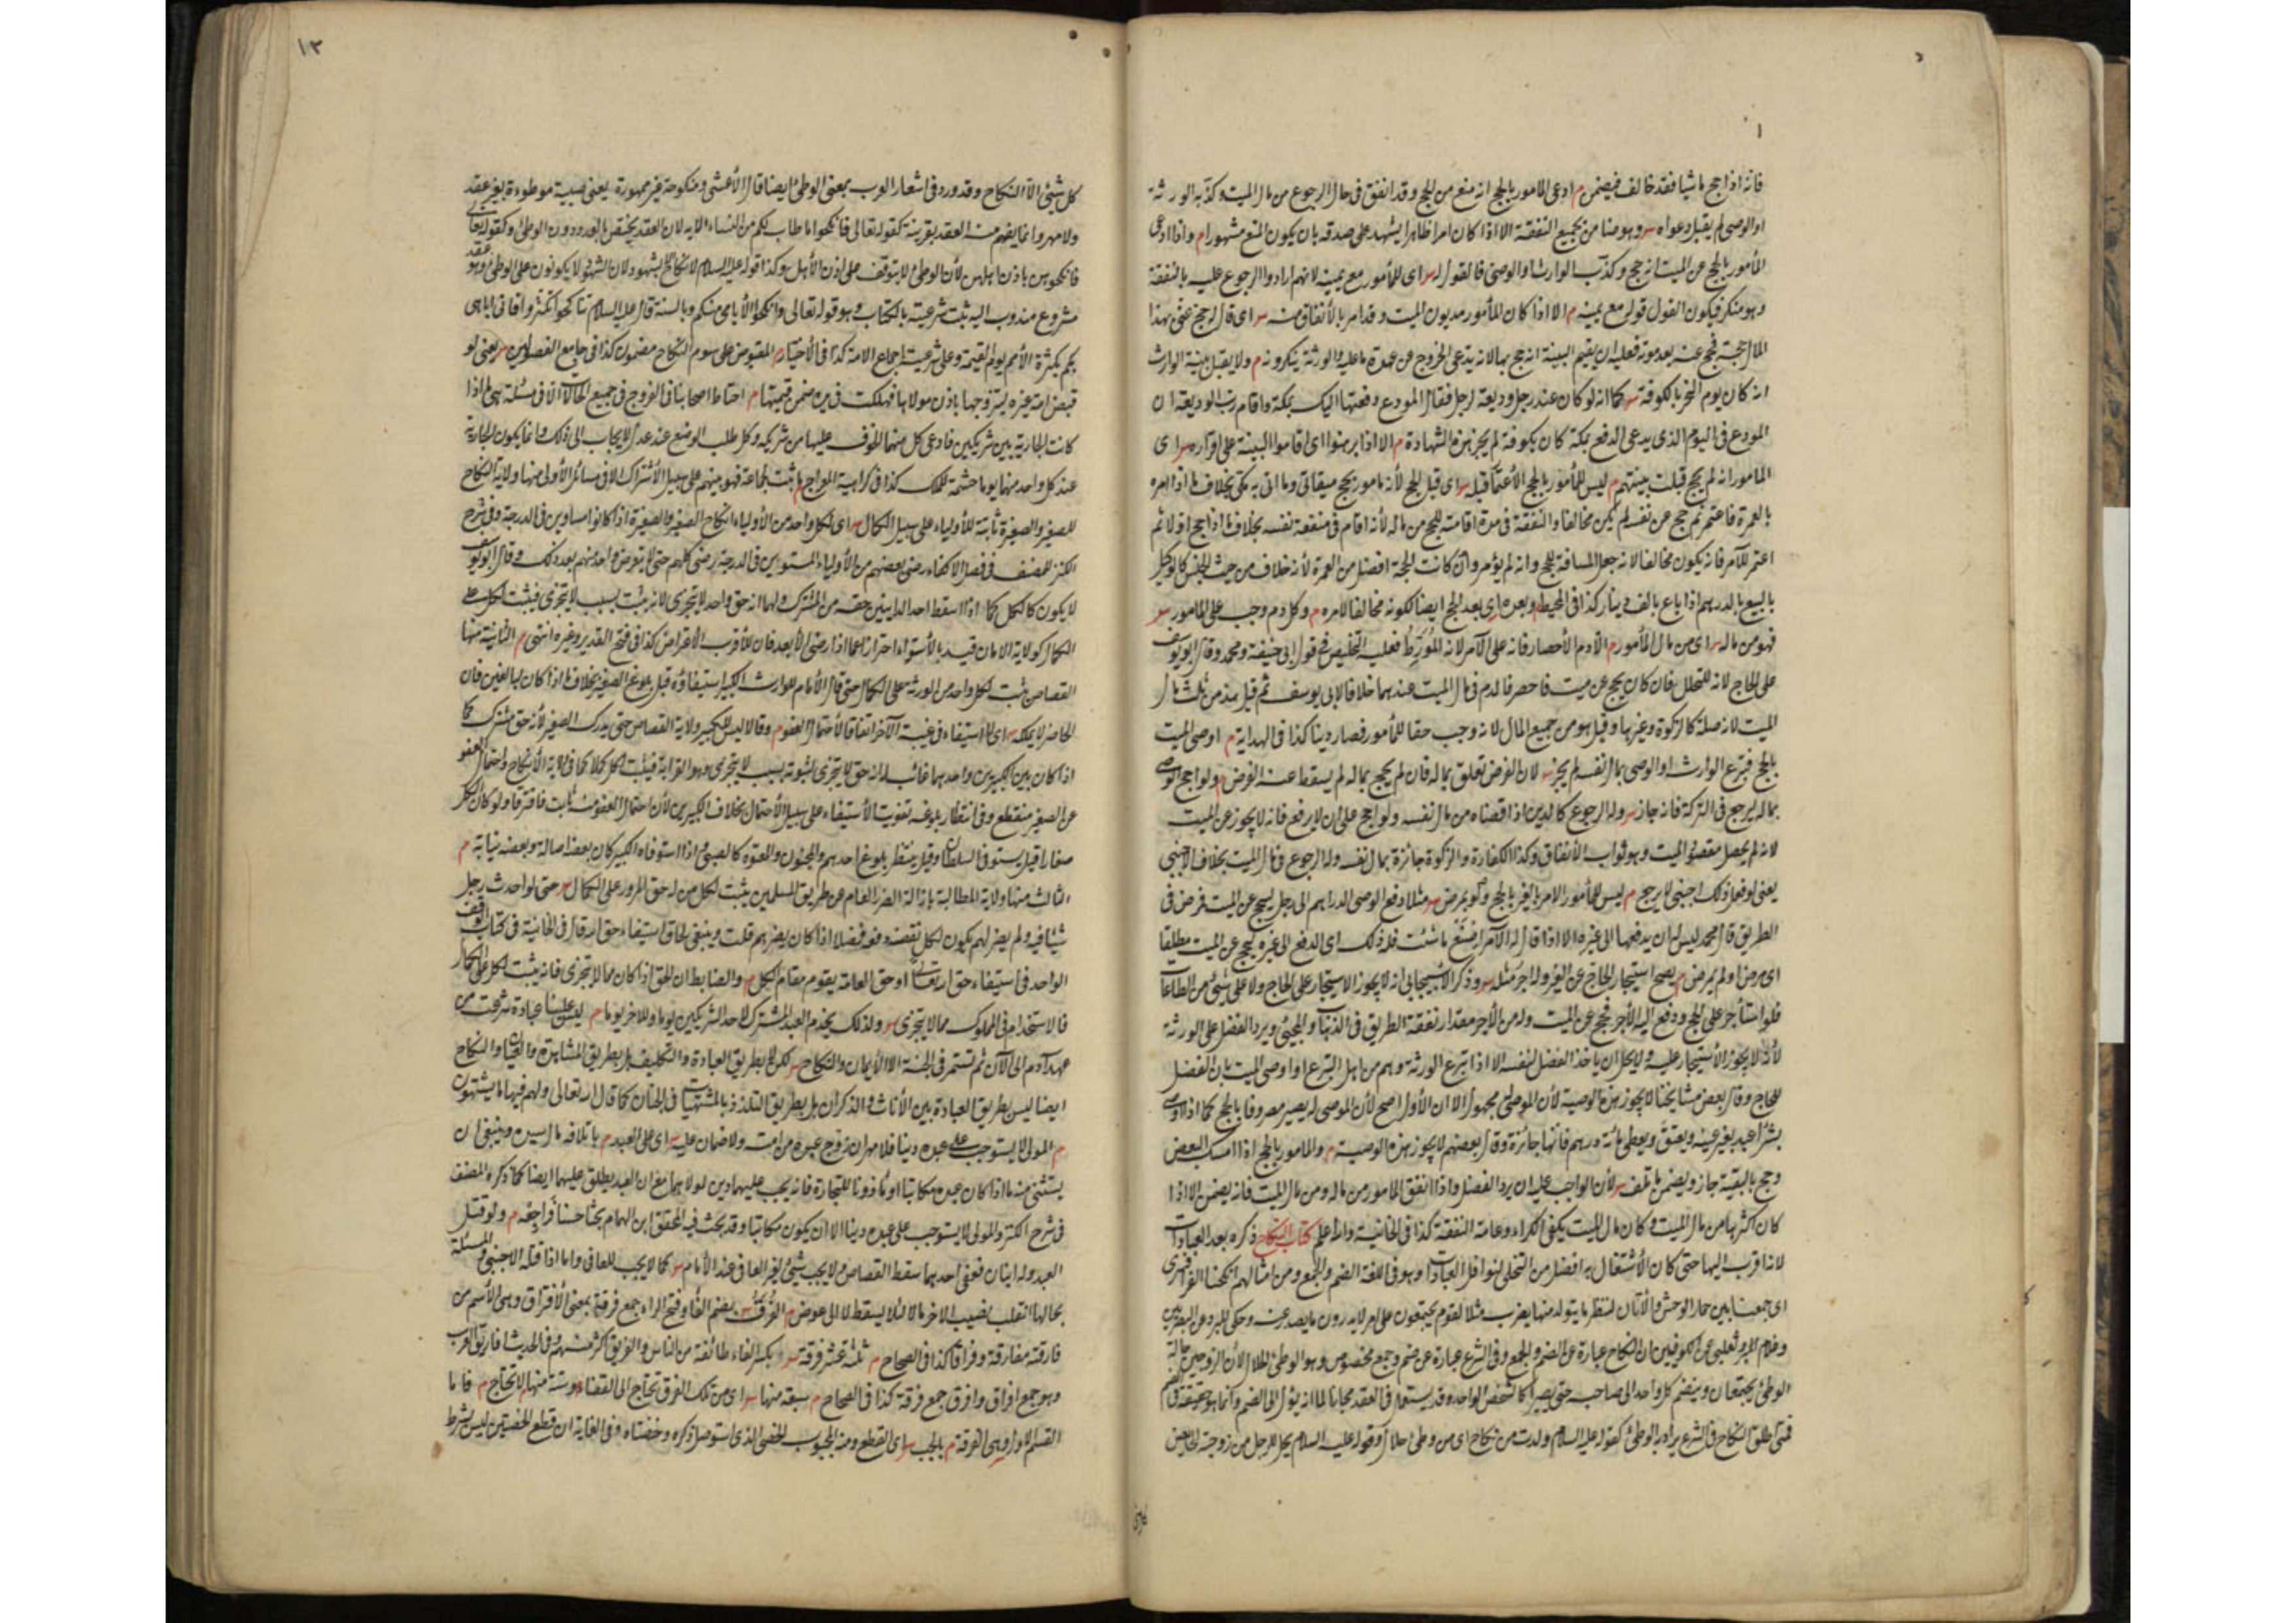 فانه اذا حج ماشيا فقد خالف فيضمن م ادعى المامور بالحج انه منع من الحج وقد انفق في حال الرجوع من مال الميت وكذبه الورثة
او الوصى لم يقبل دعواه س وهو ضامن بجميع النفقة الا اذا كان امرا ظاهرا يشهد على صدقه بان يكون المنع مشهورا م واذا ادعى
المأمور بالحج عن الميت انه حج وكذب الوارث او الوصى فالقول له س اى للمأمور مع يمينه لانهم ارادوا الرجوع عليه بالنفقة
وهو منكر فيكون القول قوله مع يمينه م الا اذا كان المأمور مديون الميت وقد امر بالأنفاق منه س اى قال له حج عنى بهذا
المال حجة فحج عنه بعد موته فعليه ان يقيم البينة انه حج بها لانه يدعى الخروج عن عهدة ما عليه والورثة ينكرونه م ولا يقبل بينة الوارث
انه كان يوم النحر بالكوفة س كما انه لو كان عند رجل وديعة لرجل فقال المودع دفعتها اليك بمكة واقام رب الوديعة ان
المودع فى اليوم الذى يدعى الدفع بمكة كان بكوفة لم يجز هذه الشهادة م الا اذا برهنوا اى اقاموا البينة على اقراره س اى
المامور انه لم يحج قبلت بينتهم م ليس للمأمور بالحج الأعتمار قبله س اى قبل الحج لأنه مامور بحج ميقاتى وما اتى به مكى بخلاف ما اذا امره
بالعمرة فاعتمر ثم حج عن نفسه لم يكن مخالفا والنفقة فى مدة اقامته للحج من ماله لأنه اقام فى منفعة نفسه بخلاف ما اذا حج اولا ثم
اعتمر للآمر فانه يكون مخالفا لانه جعل المسافة للحج وانه لم يؤمر وان كانت الحجة افضل من العمرة لأنه خلاف من حيث الجنس كالوكيل
بالبيع بالدرهم اذا باع بالف دينار كذا فى المحيط م وبعده اى بعد الحج ايضا لكونه مخالفا لامره م وكل دم وجب على المامور س
فهو من ماله س اى من مال المأمور م الا دم الأحصار فانه على الآمر لانه المورط فعليه التخليص فى قول ابى حنيفة ومحمد وقال ابو يوسف
على الحاج لانه للتحلل فان كان يحج عن ميت فاحصر فالدم فى مال الميت عندهما خلافا لابى يوسف ثم قيل هذا من ثلث مال
الميت لانه صلة كالزكوة وغيرها وقيل هو من جميع المال لانه وجب حقا للمأمور فصار دينا كذا فى الهداية م اوصى الميت
بالحج فتبرع الوارث او الوصى بمال نفسه لم يجز س لان الفرض تعلق بماله فان لم يحج بماله لم يسقط عنه الفرض م ولو احج الوصى
بماله ليرجع فى التركة فانه جاز س وله الرجوع كالدين اذا قضاه من مال نفسه ولو احج على ان لا يرجع فانه لا يجوز عن الميت
لانه لم يحصل مقصود الميت وهو ثواب الأنفاق وكذا الكفارة والزكوة جائزة بمال نفسه وله الرجوع فى مال الميت بخلاف الاجنبى
يعنى لو فعل ذلك اجنبى لا يرجع م ليس للمأمور الامر لغير بالحج ولو بمرض س مثلا دفع الوصى الدراهم الى رجل ليحج عن الميت فمرض فى
الطريق قال محمد ليس له ان يدفعها الى غيره الا اذا قال له الآمر اصنع ما شئت فله ذلك اى الدفع الى غيره ليحج عن الميت مطلقا
اى مرض او لم يمرض م يصح استيجار الحاج عن الغير وله اجر مثله س وذكر الأسبيجابى انه لا يجوز الاستيجار على الحاج ولا على شئ من الطاعات
فلو استأجر على الحج ودفع اليه الأجر فحج عن الميت وله من الأجر مقدار نفقة الطريق فى الذهاب والمجئ ويرد الفضل على الورثة
لأنه لا يجوز الأستيجار عليه ولا يحل ان ياخذ الفضل لنفسه الا اذا تبرع الورثة وهم من اهل التبرع او اوصى الميت بان الفضل
للحاج وقال بعض مشايخنا لا يجوز هذه الوصية لأن الموصى له مجهول الا ان الأول اصح لأن الموصى له يصير معروفا بالحج كما اذا اوصى
بشرا عبد بغير عينه ويعتق ويعطى مائة درهم فانها جائزة وقال بعضهم لا يجوز هذه الوصية م والمامور بالحج اذا امسك البعض
وحج بالبقية جاز ويضمن ما تلف س لأن الواجب عليه ان يرد الفضل واذا انفق المامور من ماله ومن مال الميت فانه يضمن الا اذا
كان اكثرها من مال الميت وكان مال الميت يكفى الكراء وعامة النفقة كذا فى الخانية والله اعلم كتاب النكاح ذكره بعد العبادات
لانه اقرب اليها حتى كان الأشتغال به افضل من التخلى لنوافل العبادات وهو فى اللغة الضم والجمع ومن امثالهم انكحنا الفرا فنرى
اى جمعنا بين حمار الوحش والأتان لننظر ما يتولد منهما يضرب مثلا لقوم يجتمعون على امر لا يدرون ما يصدر عنه وحكى المبرد عن البصريين
وغلام ثعلب عن الكوفيين ان النكاح عبارة عن الضم والجمع وفى الشرع عبارة عن ضم وجمع مخصوص وهو الوطئ الحلال لأن الزوجين حالة
الوطئ يجتمعان وينضم كل واحد الى صاحبه حتى يصيرا كالشخص الواحد وقد يستعمل فى العقد مجازا لما انه يؤل الى الضم وانما هو حقيقة فى الضم
فمتى اطلق النكاح فى الشرع يراد به الوطئ كقوله عليه السلام ولدت من نكاح اى من وطئ حلال وقوله عليه السلام يحل للرجل من زوجته الحائض
كل شئ الا النكاح وقد ورد فى اشعار العرب بمعنى الوطئ ايضا قال الأعشى ومنكوحة غير ممهورة يعنى مسبية موطوءة بغير عقد
ولا مهر وانما يفهم منه العقد بقرينة كقوله تعالى فانكحوا ما طاب لكم من النساء الايه لان العقد يختص بالعدد دون الوطئ وكقوله تعالى
فانكحوهن باذن اهلهن لأن الوطئ لا يتوقف على اذن الأهل وكذا قوله عليه السلام لا نكاح الا بشهود لان الشهود لا يكونون على الوطئ وهو عقد
مشروع مندوب اليه ثبت شرعيته بالكتاب وهو قوله تعالى وانكحوا الأيامى منكم وبالسنة قال عليه السلام تناكحوا تكثروا فانى اباهى
بكم بكثرة الأمم يوم القيمة وعلى شرعيته اجماع الامة كذا فى الأختيار م المقبوض على سوم النكاح مضمون كذا فى جامع الفصولين س يعنى لو
قبض امة غيره ليتزوجها باذن مولاها فهلكت فى يده ضمن قيمتها م احتاط اصحابنا فى الفروج فى جميع الحالات الا فى مسئلة هى ما اذا
كانت الجارية بين شريكين فادعى كل منهما الخوف عليها من شريكه وكل طلب الوضع عند عدل لا يجاب الى ذلك وانما يكون الجارية
عند كل واحد منهما يوما حشمة للملك كذا فى كراهية المعراج م ما ثبت لجماعة فهو بينهم على سبيل الأشتراك الا فى مسائل الأولى منها ولاية النكاح
للصغير والصغيرة ثابتة للأولياء على سبيل الكمال س اى لكل واحد من الأولياء انكاح الصغير والصغيرة اذا كانوا متساوين فى الدرجة وفى شرح
الكنز للمصنف فى فصل الاكفاء رضى بعضهم من الأولياء المستوين فى الدرجة رضى كلهم حتى لا يتعرض واحد منهم بعد ذلك وقال ابو يوسف
لا يكون كالكل كما اذا اسقط احد الدائنين حقه من المشترك ولهما انه حق واحد لا يتجزى لانه ثبت بسبب لا يتجزى فيثبت لكل على
الكمال كولاية الامان قيد بالأستواء احترازا عما اذا رضى الأبعد فان للأقرب الأعتراض كذا فى فتح القدير وغيره انتهى م الثانية منها
القصاص يثبت لكل واحد من الورثة على الكمال حتى قال الأمام للوارث الكبير استيفاؤه قبل بلوغ الصغير بخلاف ما اذا كان لبالغين فان
الحاضر لا يملكه س اى الاستيفاء فى غيبة الآخر اتفاقا لأحتمال العفو م وقالا ليس للكبير ولاية القصاص حتى يدرك الصغير لأنه حق مشترك كما
اذا كان بين الكبيرين واحدهما غائب له انه حق لا يتجزى لثبوته بسبب لا يتجزى وهو القرابة فيثبت لكل كملا كما فى ولاية الأنكاح واحتمال العفو
عن الصغير منقطع وفى انتظار بلوغه تفويت الأستيفاء على سبيل الأحتمال بخلاف الكبيرين لأن احتمال العفو منه ثابت فافترقا ولو كان الكل
صغارا قيل يستوفى السلطان وقيل ينتظر بلوغ احدهم والمجنون والمعتوه كالصبى واذا استوفاه الكبير كان بعضه اصالة وبعضه نيابة م
الثالث منها ولاية المطالبة بازالة الضرر العام عن طريق المسلمين يثبت لكل من له حق المرور على الكمال س حتى لو احدث رجل
شيئا فيه ولم يضر لهم يكون لكل نقضه ودفعه فضلا اذا كان يضر بهم قلت وينبغى الحاق استيفاء حق الله قال فى الخانية فى كتاب الوقف
الواحد فى استيفاء حق الله تعالى او حق العامة يقوم مقام الكل م والضابط ان الحق اذا كان مما لا يتجزى فانه يثبت لكل على الكمال
فالاستخدام فى المملوك مما لا يتجزى س ولذلك يخدم العبد المشترك لاحد الشريكين يوما وللاخر يوما م ليس علينا عبادة شرعت من
عهد آدم الى الآن ثم تستمر فى الجنة الا الأيمان والنكاح س لكن لا بطريق العبادة والتكليف بل بطريق المشاهدة والعيان والنكاح
ايضا ليس بطريق العبادة بين الأناث والذكران بل بطريق التلذذ بالمشتهيات فى الجنان كما قال الله تعالى ولهم فيها ما يشتهون
م المولى لا يستوجب على عبده دينا فلا مهر ان زوج عبده من امته ولا ضمان عليه س اى على العبد م باتلاف مال سيده وينبغى ان
يستثنى منه ما اذا كان عبده مكاتبا او مأذونا للتجارة فانه يجب عليهما دين لمولاهما مع ان العبد يطلق عليهما ايضا كما ذكره المصنف
فى شرح الكنز والمولى لا يستوجب على عبده دينا الا ان يكون مكاتبا وقد بحث فيه المحقق ابن الهمام بحثا حسنا فراجعه م ولو قتل
العبد وله ابنان فعفى احدهما سقط القصاص ولا يجب شئ لغير العافى عند الأمام س كما لا يجب للعافى واما اذا قتله الاجنبى والمسئلة
بحالها انقلب نصيب الاخر مالا لئلا يسقط لا الى عوض م الفرق س بضم الفاء وفتح الراء جمع فرقة بمعنى الأفتراق وهى الأسم من
فارقته مفارقة وفراقا كذا فى الصحاح م ثلثة عشر فرقة س بكسر الفاء طائفة من الناس والفريق اكثر منهم وفى الحديث افاريق العرب
وهو جمع افراق وافراق جمع فرقة كذا فى الصحاح م سبعة منها س اى من تلك الفرق تحتاج الى القضاء وستة منها لا تحتاج م فاما
القسم الاول وهى الفرقة م بالجب س اى القطع ومنه المجبوب الخصى الذى استوصل ذكره وخصيتاه وفى الغاية ان قطع الخصيتين ليس بشرط